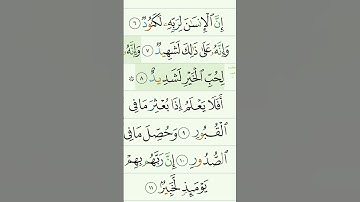 إِنَّ ٱلْإِنسَٰنَ لِرَبِّهِۦ لَكَنُودٌ ٦
وَإِنَّهُۥ عَلَىٰ ذَٰلِكَ لَشَهِيدٌ ٧ وَإِنَّهُۥ
لِحُبِّ ٱلْخَيْرِ لَشَدِيدٌ ٨ ۞
أَفَلَا يَعْلَمُ إِذَا بُعْثِرَ مَا فِى
ٱلْقُبُورِ ٩ وَحُصِّلَ مَا فِى
ٱلصُّدُورِ ١٠ إِنَّ رَبَّهُم بِهِمْ
يَوْمَئِذٍ لَّخَبِيرٌۢ ١١